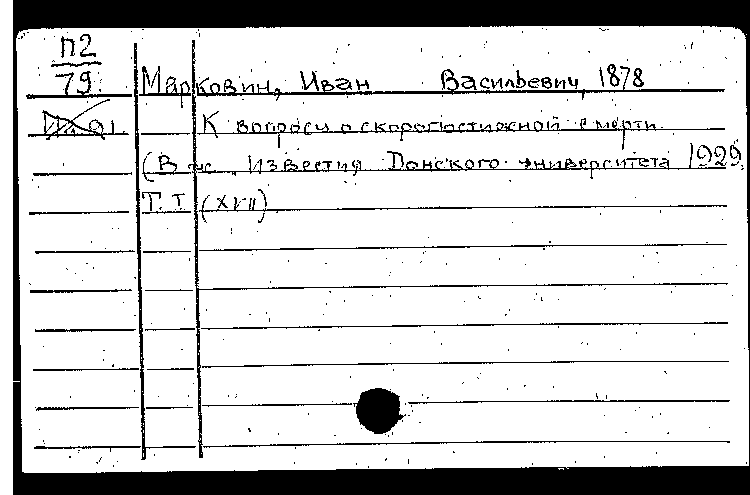 П2
79
Марковин, Иван Васильевич, 1878
К вопросу о скоропостижной смерти
(В кн. Известия Донского университета 1929
Т. I (XVII)